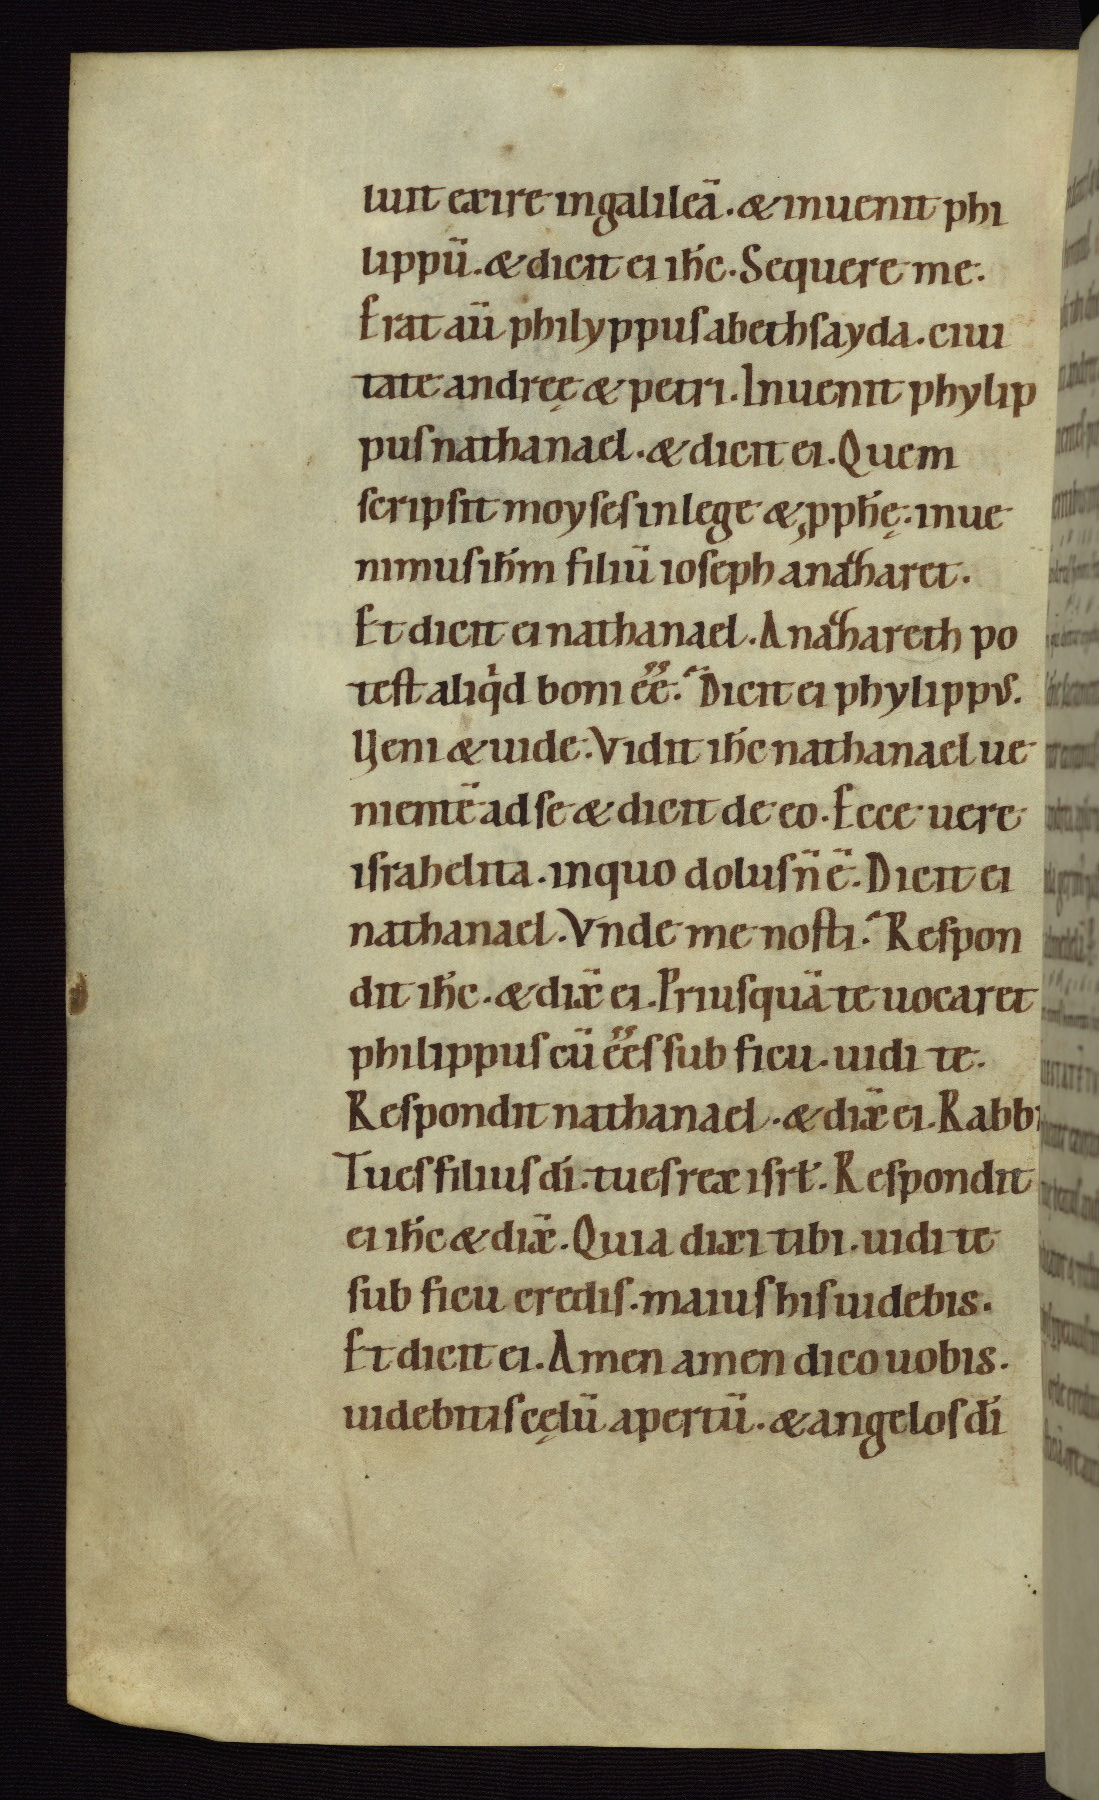 luit exire in galileā. & inuenit phi
lippū. & dicit ei ihc̄. Sequere me.
Erat aū philyppus abethsayda. ciui
tate andreę & petri. Inuenit phylip
pus nathanael. & dicit ei. Quem
scripsit moyses in lege & ꝓph̄ę. inue
nimus ih̄m filiū ioseph anazaret.
Et dicit ei nathanael. Anazareth po
test aliqd boni ēē. Dicit ei phylippus.
Veni & uide. Vidit ihc̄ nathanael ue
nientē ad se & dicit de eo. Ecce uere
israhelita. in quo dolus n̄ ē. Dicit ei
nathanael. Vnde me nosti. Respon
dit ihc̄. & dix̄ ei. Priusquā te uocaret
philippus cū ēēs sub ficu. uidi te.
Respondit nathanael. & dix̄ ei. Rabbi
Tu es filius dī. tu es rex isrł. Respondit
ei ihc̄ & dix̄. Quia dixi tibi. uidi te
sub ficu credis. maius his uidebis.
Et dicit ei. Amen amen dico uobis.
uidebitis cęlū apertū. & angelos dī